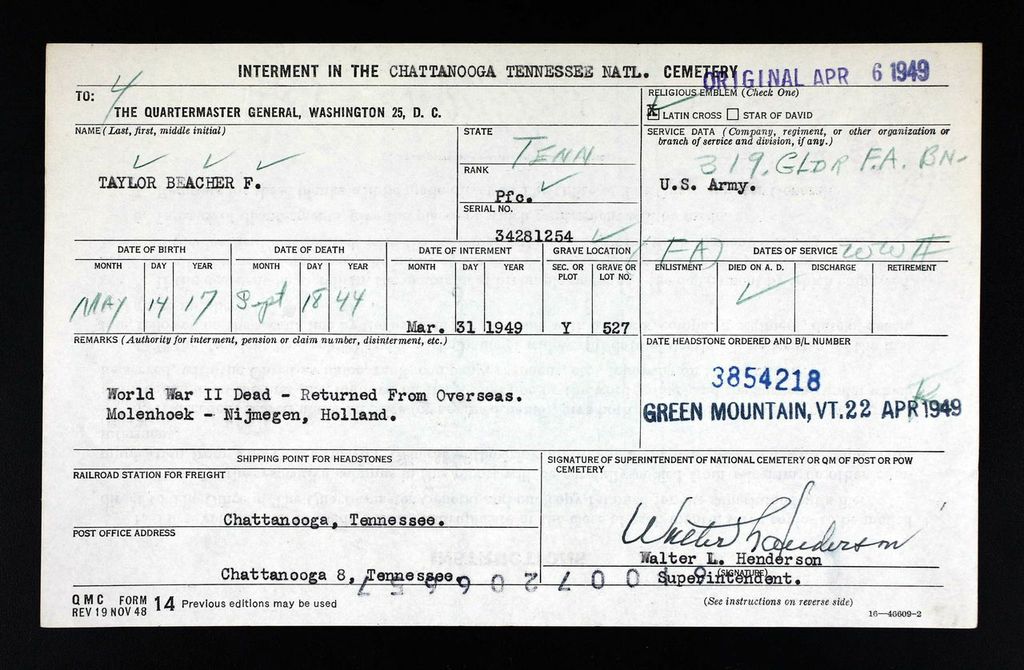 INTERMENT IN THE CHATTANOOGA TENNESSEE NATL. CEMETERY
ORIGINAL APR 6 1949
TO: 4
THE QUARTERMASTER GENERAL, WASHINGTON 25, D. C.
RELIGIOUS EMBLEM (Check One)
X LATIN CROSS STAR OF DAVID
NAME (Last, first, middle initial)
TAYLOR BEACHER F.
STATE
TENN
RANK
Pfc.
SERIAL NO.
34281254
SERVICE DATA (Company, regiment, or other organization or
branch of service and division, if any.)
319. GLDR F.A. BN-
U.S. Army.
(FA)
DATE OF BIRTH
MONTH DAY YEAR
MAY 14 17
DATE OF DEATH
MONTH DAY YEAR
Sept 18 44.
DATE OF INTERMENT
MONTH DAY YEAR
Mar. 31 1949
GRAVE LOCATION
SEC. OR PLOT GRAVE OR LOT NO.
Y 527
DATES OF SERVICE WW II
ENLISTMENT DIED ON A. D. DISCHARGE RETIREMENT
REMARKS (Authority for interment, pension or claim number, disinterment, etc.)
World War II Dead - Returned From Overseas.
Molenhoek - Nijmegen, Holland.
DATE HEADSTONE ORDERED AND B/L NUMBER
3854218
GREEN MOUNTAIN, VT. 22 APR 1949
SHIPPING POINT FOR HEADSTONES
RAILROAD STATION FOR FREIGHT
Chattanooga, Tennessee.
POST OFFICE ADDRESS
Chattanooga 8, Tennessee.
SIGNATURE OF SUPERINTENDENT OF NATIONAL CEMETERY OR QM OF POST OR POW
CEMETERY
Walter L Henderson
Walter L. Henderson
(SIGNATURE)
Superintendent.
QMC FORM 14 Previous editions may be used
REV 19 NOV 48
(See instructions on reverse side)
16—46609-2